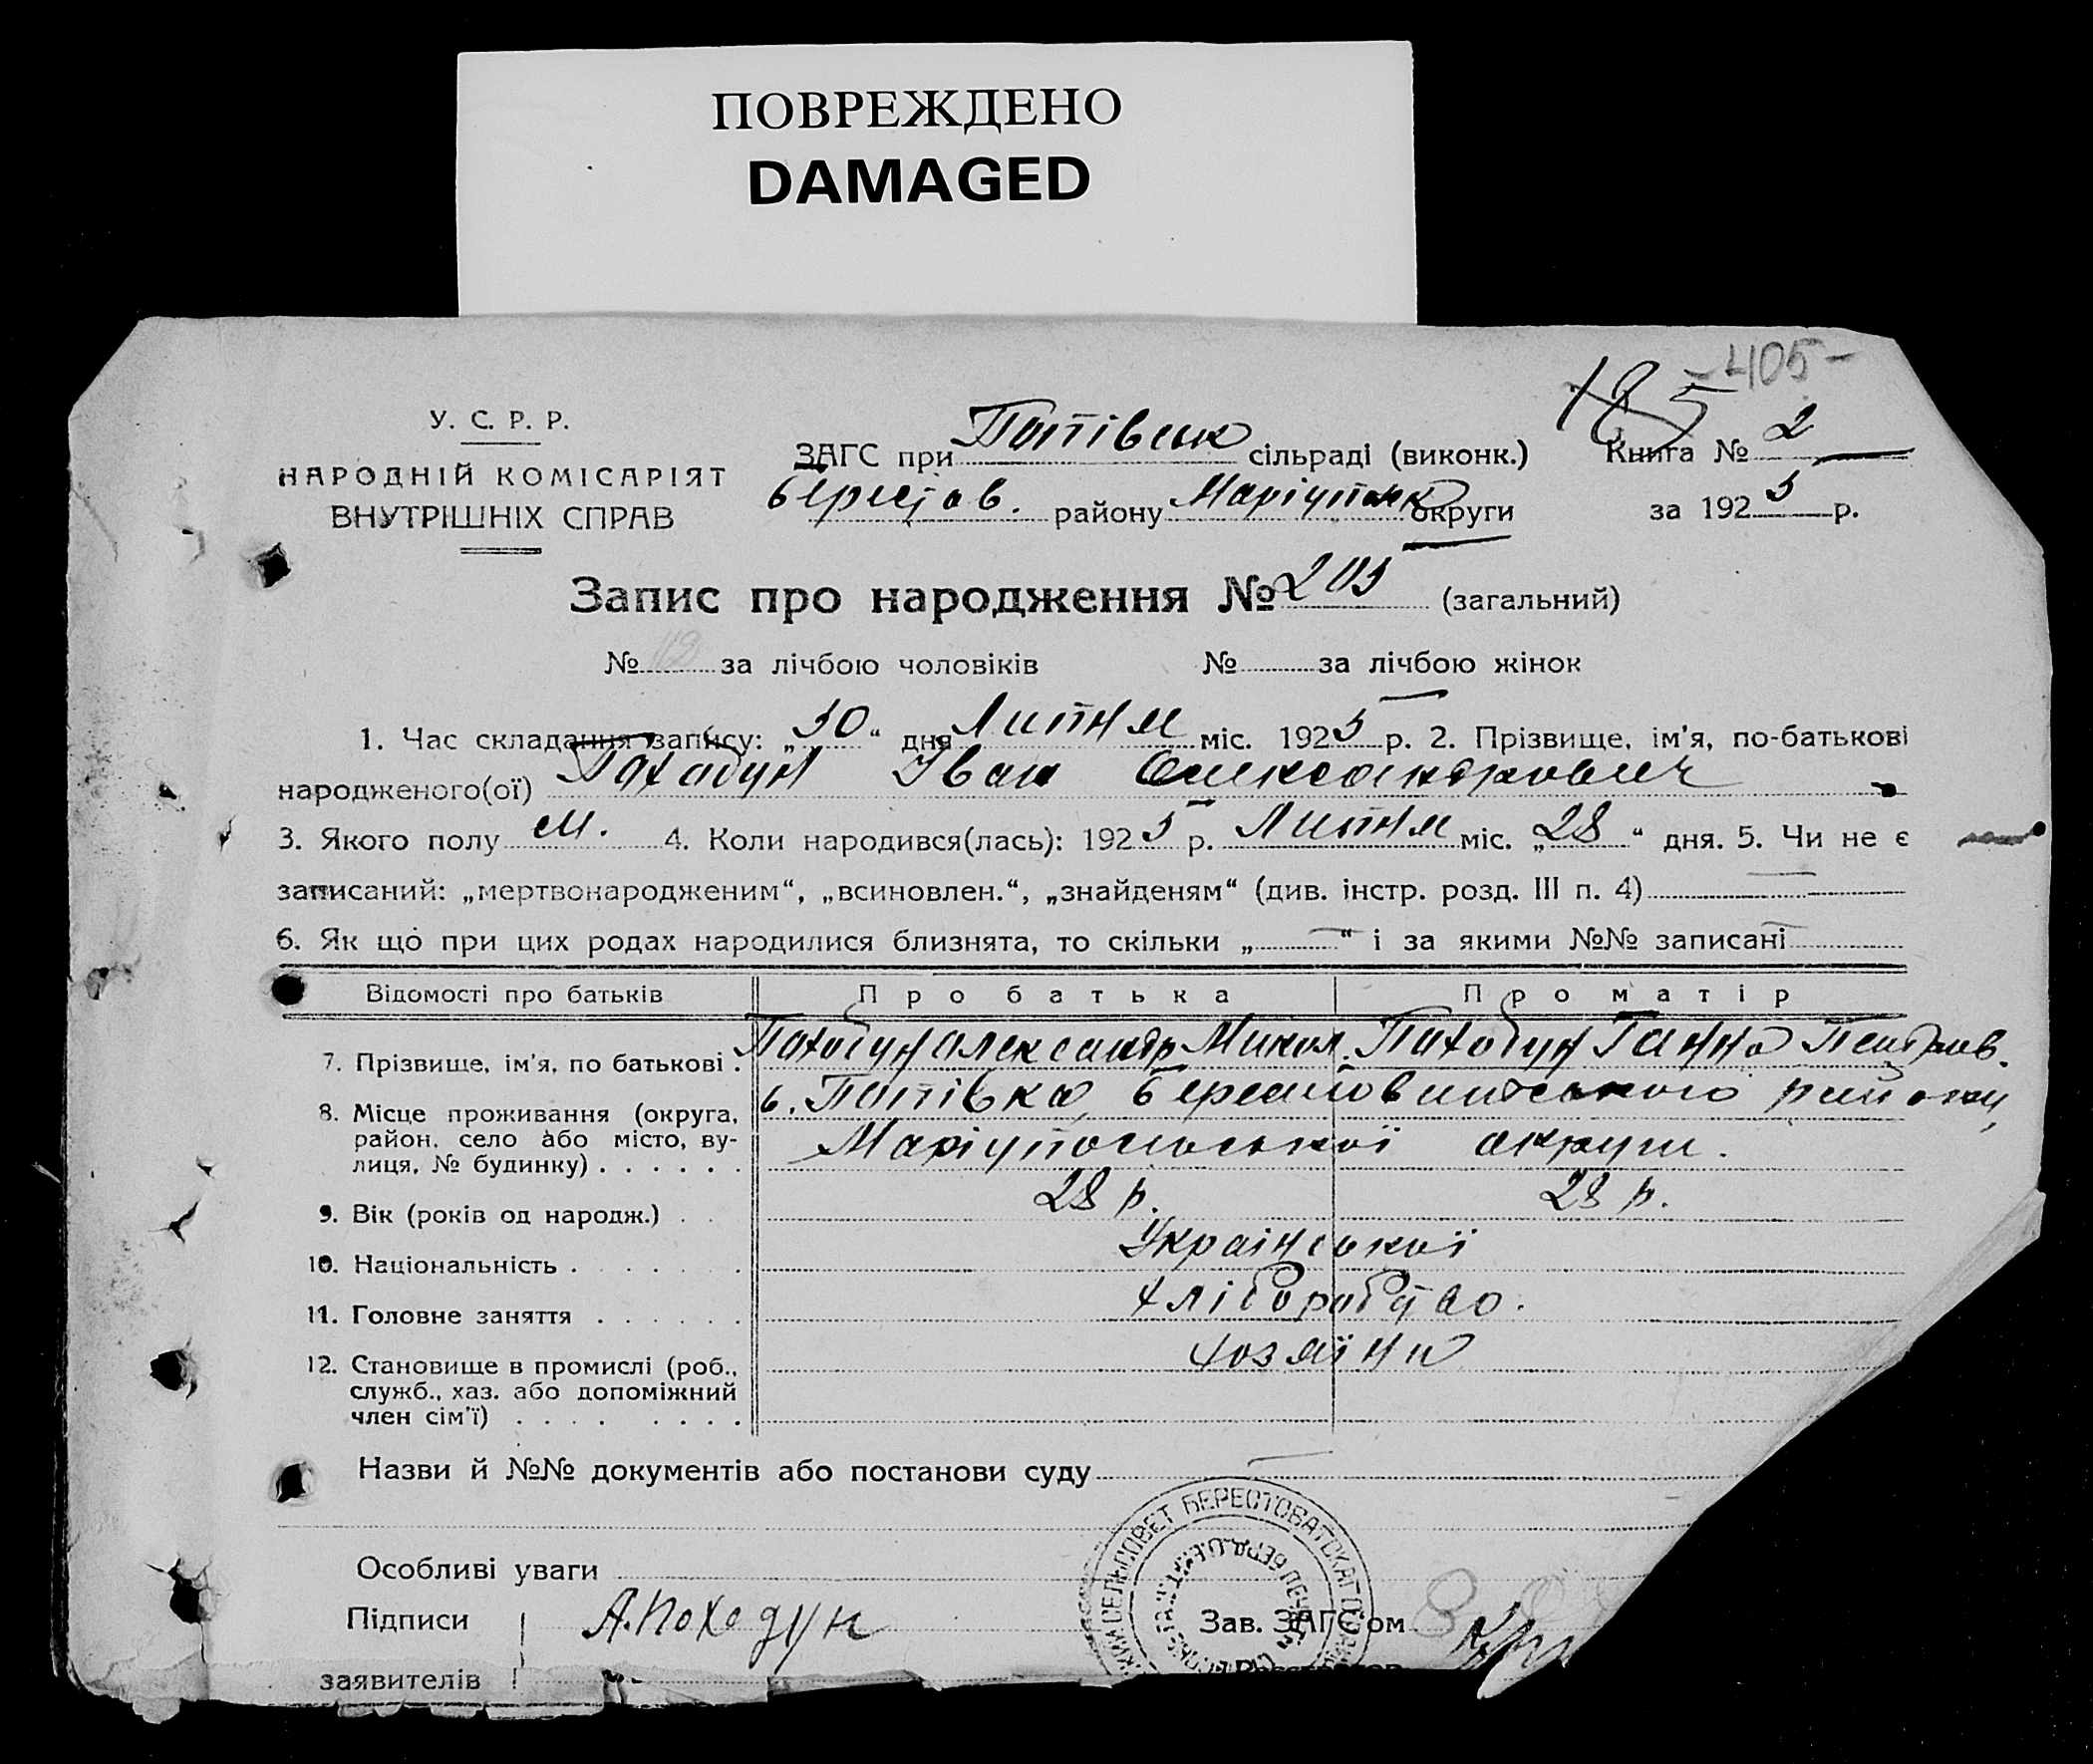 ПОВРЕЖДЕНО
DAMAGED
-405-
185
У. С. Р. Р.
НАРОДНІЙ КОМІСАРІЯТ
ВНУТРІШНІХ СПРАВ
ЗАГС при Потівськ сільраді (виконк.) Книга № 2
Берестов. району Маріупільск округи за 1925 р.
Запис про народження № 205 (загальний)
№ за лічбою чоловіків № за лічбою жінок
1. Час складання запису: „30“ дня Липня міс. 1925 р. 2. Прізвище, ім'я, по-батькові
народженого(ої) Іван Олександрович
3. Якого полу м. 4. Коли народився(лась): 1925 р. Липня міс. „28“ дня. 5. Чи не є
записаний: „мертвонародженим“, „всиновлен.“, „знайденям“ (див. інстр. розд. III п. 4)
6. Як що при цих родах народилися близнята, то скільки „—“ і за якими №№ записані
Відомості про батьків Про батька Про матір
7. Прізвище, ім'я, по батькові . Походун Александр Микол. Походун Ганна
8. Місце проживання (округа, с. Потівка, району,
район, село або місто, ву- Маріупольської округи.
лиця, № будинку) . . . . . .
9. Вік (років од народж.) . . 28 р. 28 р.
10. Національність . . . . . . Української
11. Головне заняття . . . . . . хліборобство.
12. Становище в промислі (роб., хозяїни
служб., хаз. або допоміжний
член сім'ї) . . . . . . . .
Назви й №№ документів або постанови суду
СЕЛЬСОВЕТ БЕРЕСТОВАТСКАГО
Особливі уваги
Підписи А. Походун Зав. ЗАГС'ом
заявителів